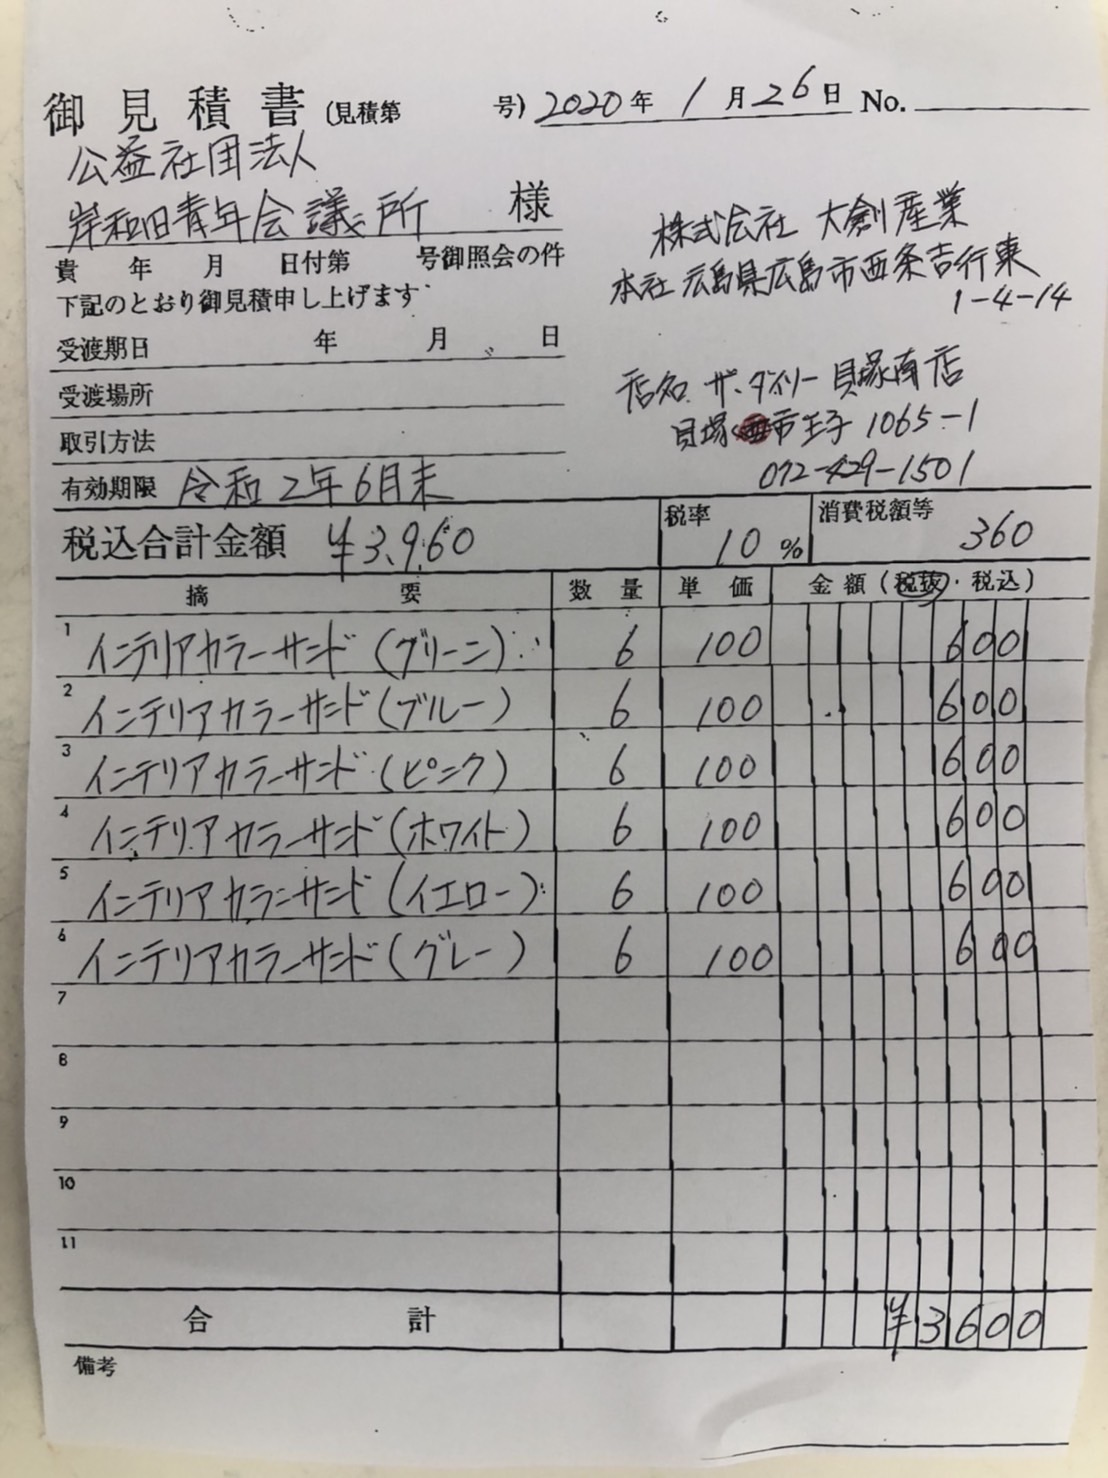 御見積書 (見積第 号) 2020年 1月26日 No.
公益社団法人
岸和田青年会議所 様
貴 年 月 日付第 号御照会の件
下記のとおり御見積申し上げます
株式会社 大創産業
本社 広島県広島市西条吉行東
1-4-14
受渡期日 年 月 日
受渡場所
取引方法
有効期限 令和2年6月末
店名 ザ・ダイソー 貝塚南店
貝塚市王子 1065-1
072-429-1501
税込合計金額 ¥3,960 税率 10% 消費税額等 360
摘要 数量 単価 金額(税抜・税込)
1 インテリアカラーサンド(グリーン) 6 100 600
2 インテリアカラーサンド(ブルー) 6 100 600
3 インテリアカラーサンド(ピンク) 6 100 600
4 インテリアカラーサンド(ホワイト) 6 100 600
5 インテリアカラーサンド(イエロー) 6 100 600
6 インテリアカラーサンド(グレー) 6 100 600
7
8
9
10
11
合計 ¥3600
備考